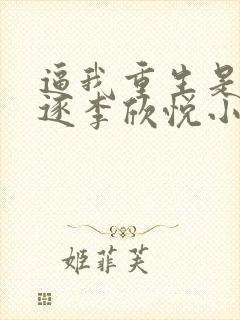 逼我重生是
逐李欣悦小
姬菲芙